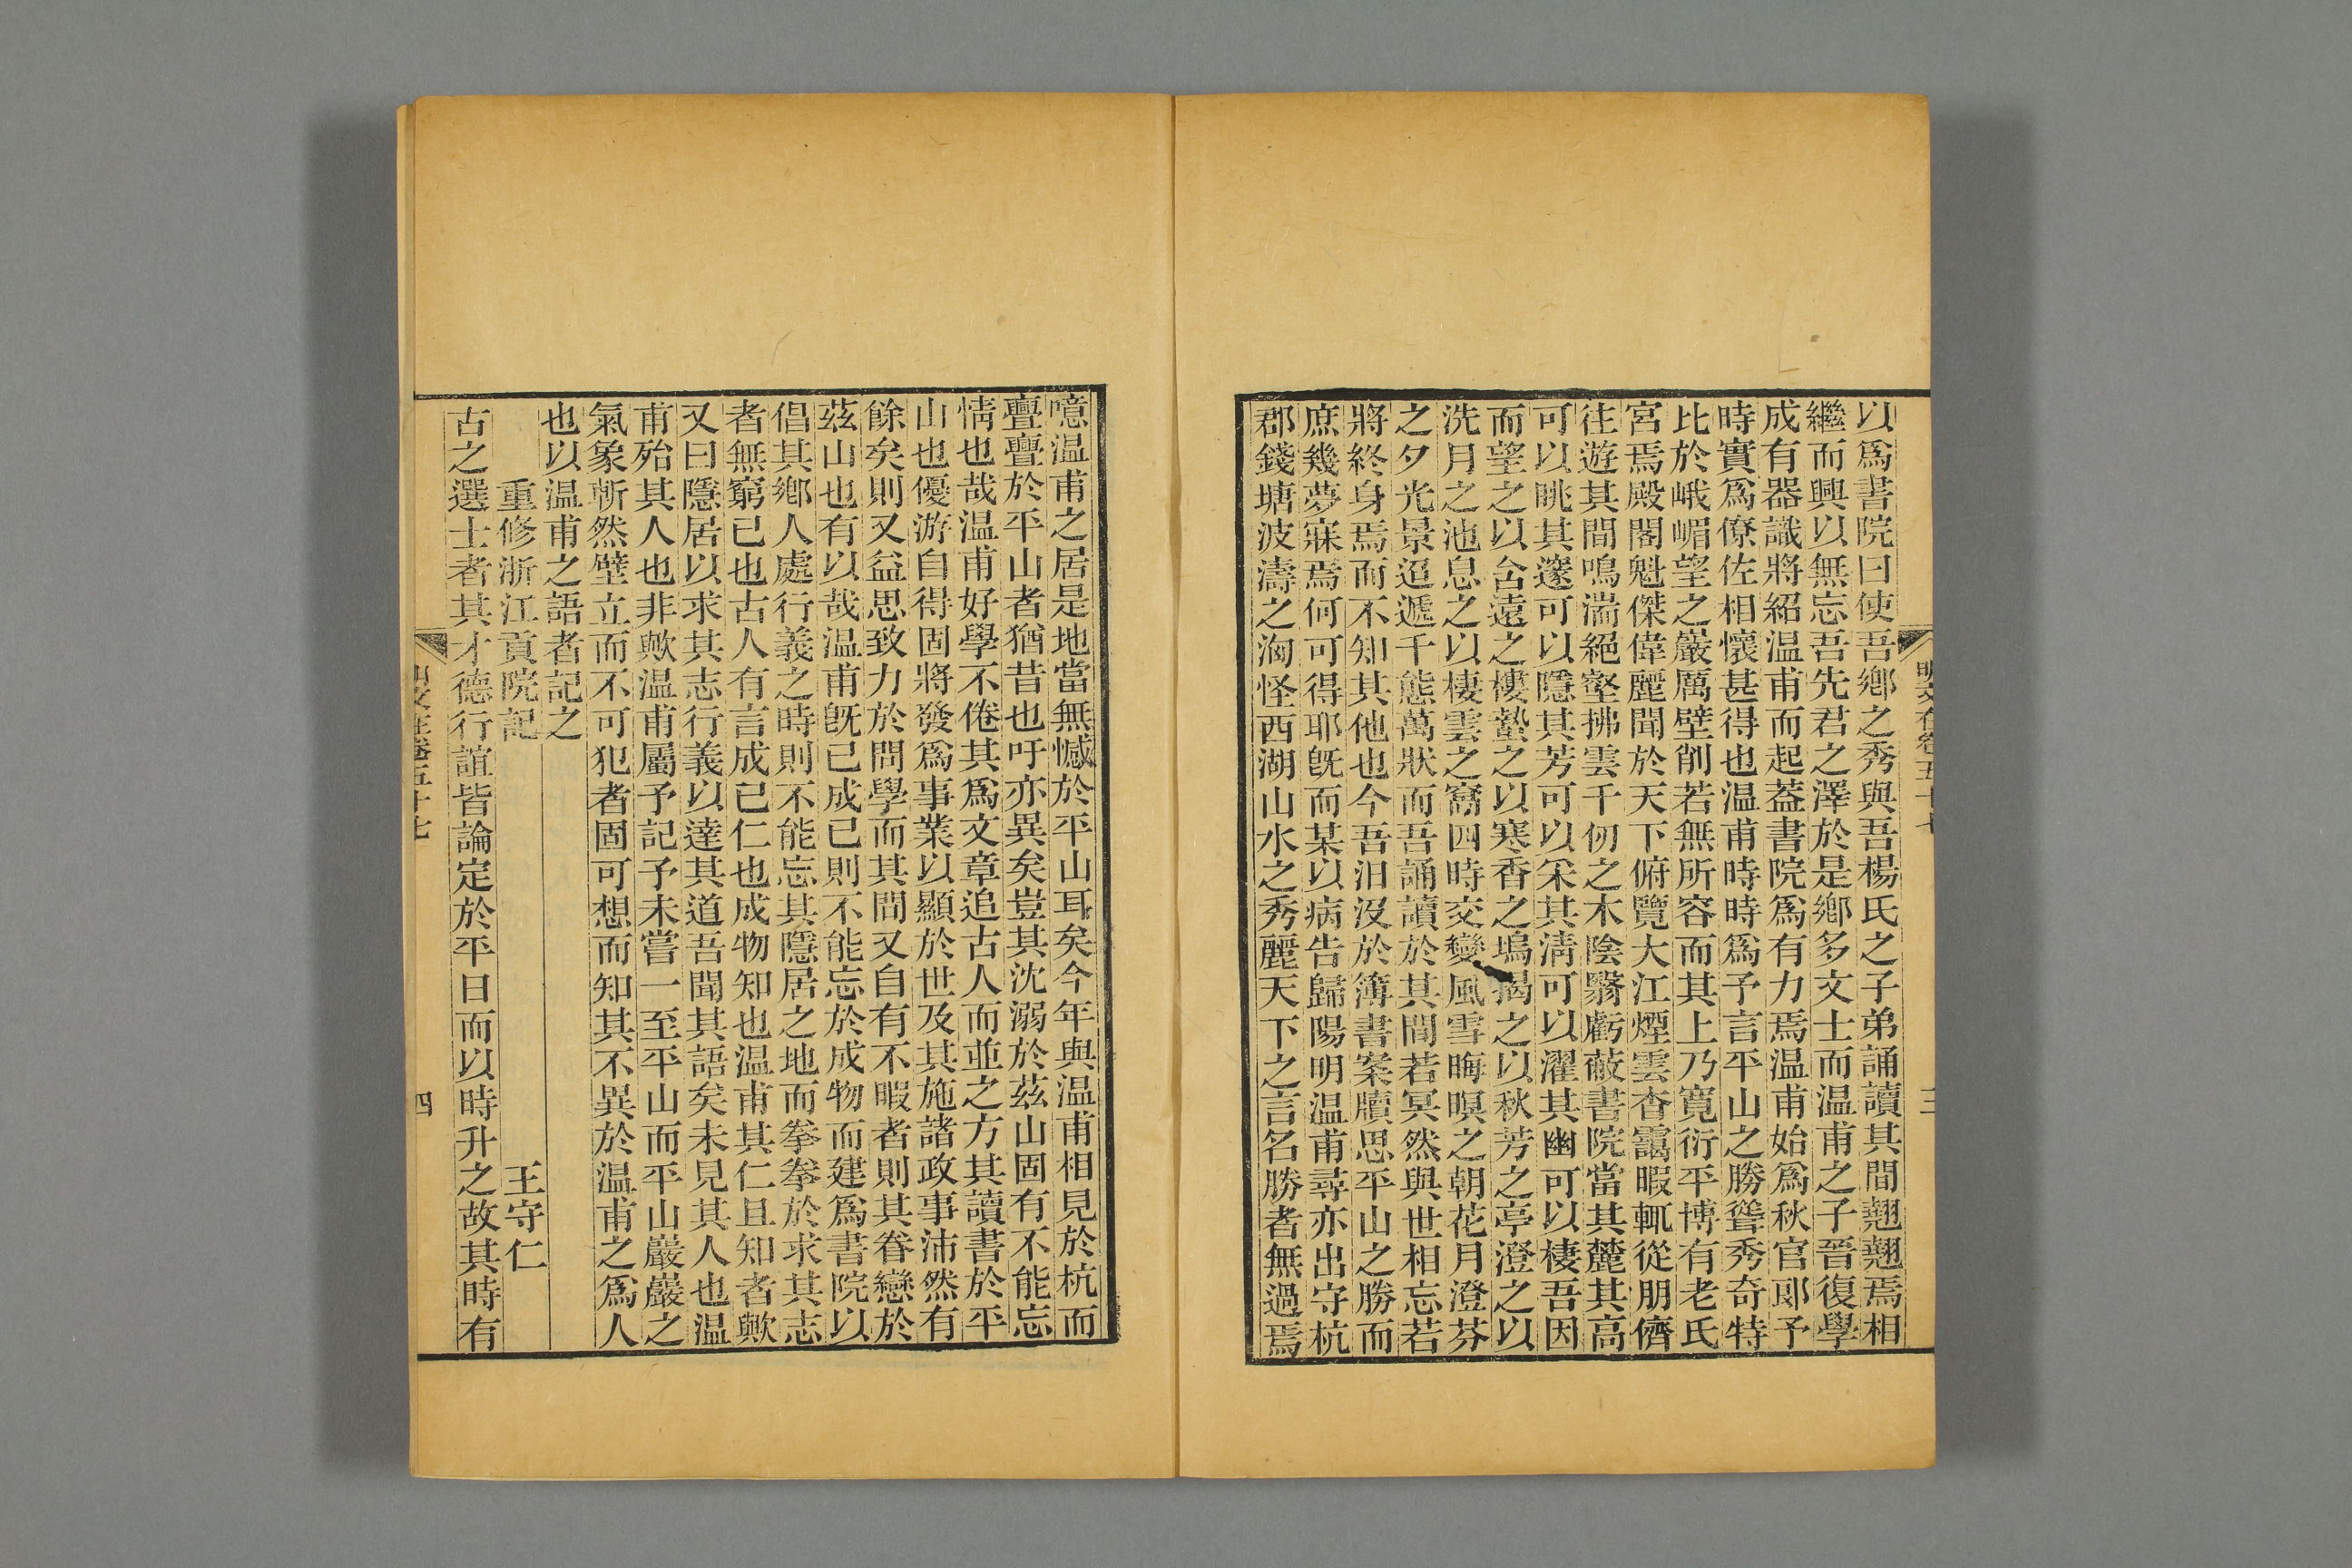 明文在卷五十七
三
以爲書院曰使吾鄉之秀與吾楊氏之子弟誦讀其間翹翹焉相
繼而興以無忘吾先君之澤於是鄉多文士而温甫之子晉復學
成有器識將紹温甫而起葢書院爲有力焉温甫始爲秋官郎予
時實爲僚佐相懷甚得也温甫時時爲予言平山之勝聳秀奇特
比於峨嵋望之巖厲壁削若無所容而其上乃寬衍平博有老氏
宮焉殿閣魁傑偉麗聞於天下俯覽大江煙雲杳靄暇輒從朋儕
往遊其間鳴湍絕壑拂雲千仞之木陰翳虧蔽書院當其麓其高
可以眺其邃可以隱其芳可以采其淸可以濯其幽可以棲吾因
而望之以舍遠之樓蟄之以寒香之塢揭之以秋芳之亭澄之以
洗月之池息之以棲雲之窩四時交變風雪晦暝之朝花月澄芬
之夕光景迢遞千態萬狀而吾誦讀於其間若冥然與世相忘若
將終身焉而不知其他也今吾汨沒於簿書案牘思平山之勝而
庶幾夢寐焉何可得耶旣而某以病告歸陽明温甫尋亦出守杭
郡錢塘波濤之洶怪西湖山水之秀麗天下之言名勝者無過焉
噫温甫之居是地當無憾於平山耳矣今年與温甫相見於杭而
亹亹於平山者猶昔也吁亦異矣豈其沈溺於茲山固有不能忘
情也哉温甫好學不倦其爲文章追古人而並之方其讀書於平
山也優游自得固將發爲事業以顯於世及其施諸政事沛然有
餘矣則又益思致力於問學而其間又自有不暇者則其眷戀於
茲山也有以哉温甫旣已成己則不能忘於成物而建爲書院以
倡其鄉人處行義之時則不能忘其隱居之地而拳拳於求其志
者無窮已也古人有言成己仁也成物知也温甫其仁且知者歟
又曰隱居以求其志行義以達其道吾聞其語矣未見其人也温
甫殆其人也非歟温甫屬予記予未嘗一至平山而平山巖巖之
氣象斬然壁立而不可犯者固可想而知其不異於温甫之爲人
也以温甫之語者記之
重修浙江貢院記
王守仁
古之選士者其才德行誼皆論定於平日而以時升之故其時有
明文在卷五十七
四